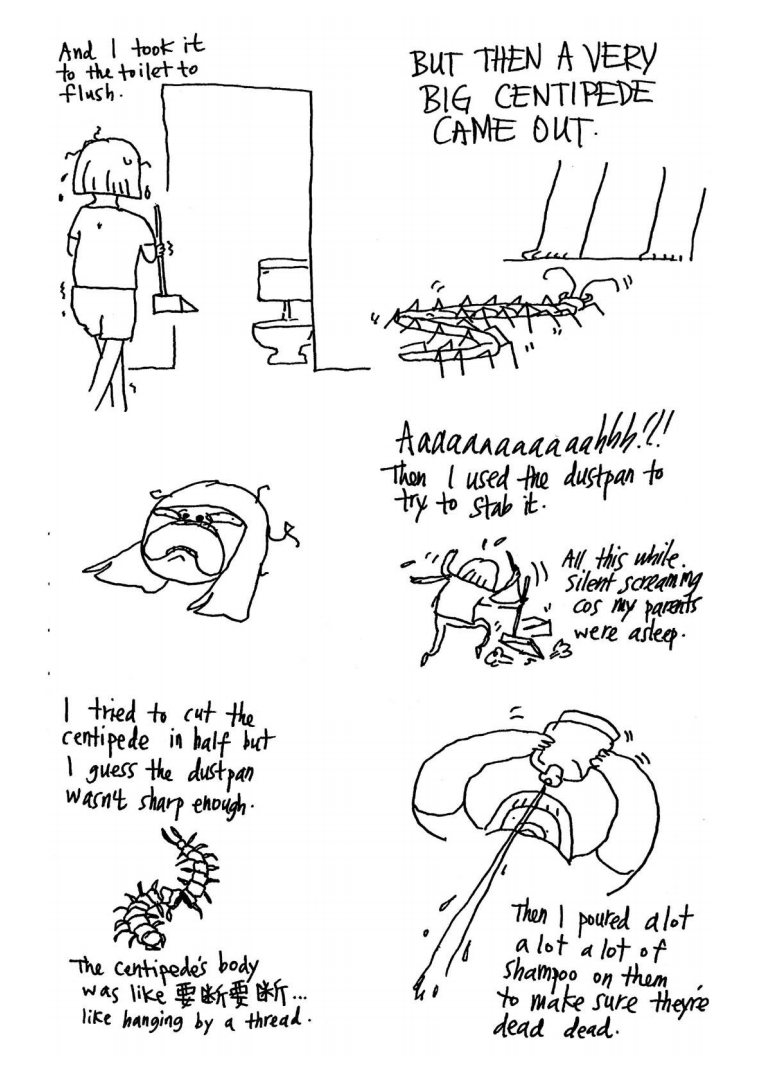 And I took it
to the toilet to
flush.
BUT THEN A VERY
BIG CENTIPEDE
CAME OUT.
Aaaaaaaaaaaahhh!!!
Then I used the dustpan to
try to stab it.
All this while.
silent screaming
cos my parents
were asleep.
I tried to cut the
centipede in half but
I guess the dustpan
wasn't sharp enough.
The centipede's body
was like 要断要断...
like hanging by a thread.
Then I poured a lot
a lot a lot of
shampoo on them
to make sure they're
dead dead.